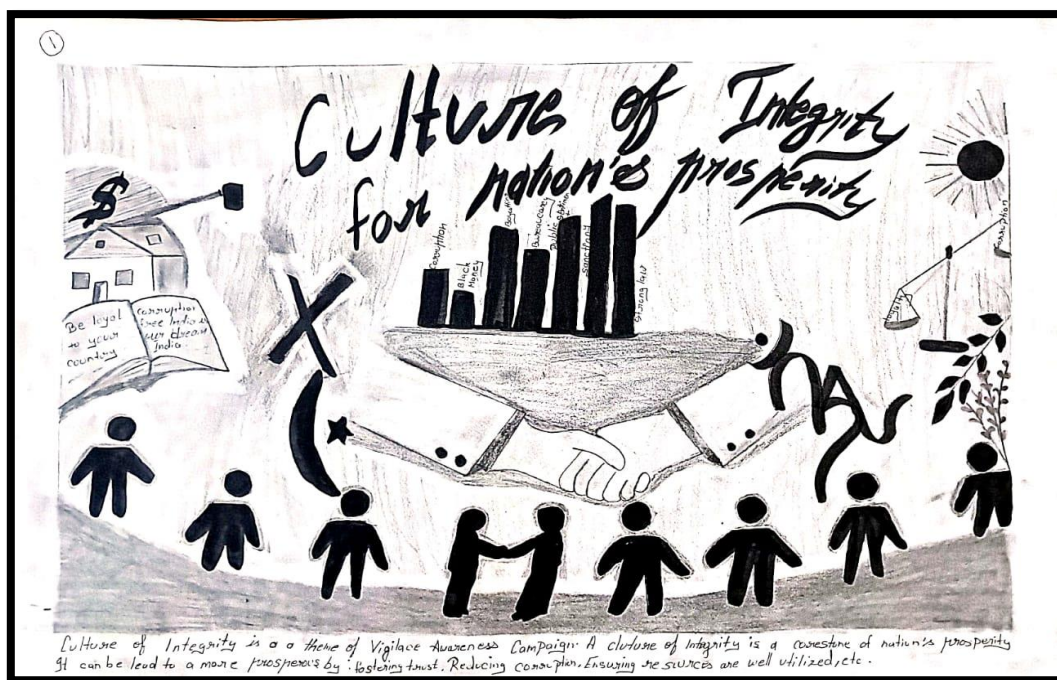 1
Culture of Integrity
for nation's prosperity
$
Be loyal
to your
country
corruption
free India is
our dream
India
Corruption
Black
Money
Bureaucracy
Public
Sanctions
Strong laws
Corruption
Culture of Integrity is a a theme of Vigilace Awareness Campaign. A cluture of Integrity is a corestone of nation's prosperity
It can be lead to a more prosperous by : fostering trust. Reducing corruption. Ensuring resources are well utilized, etc.